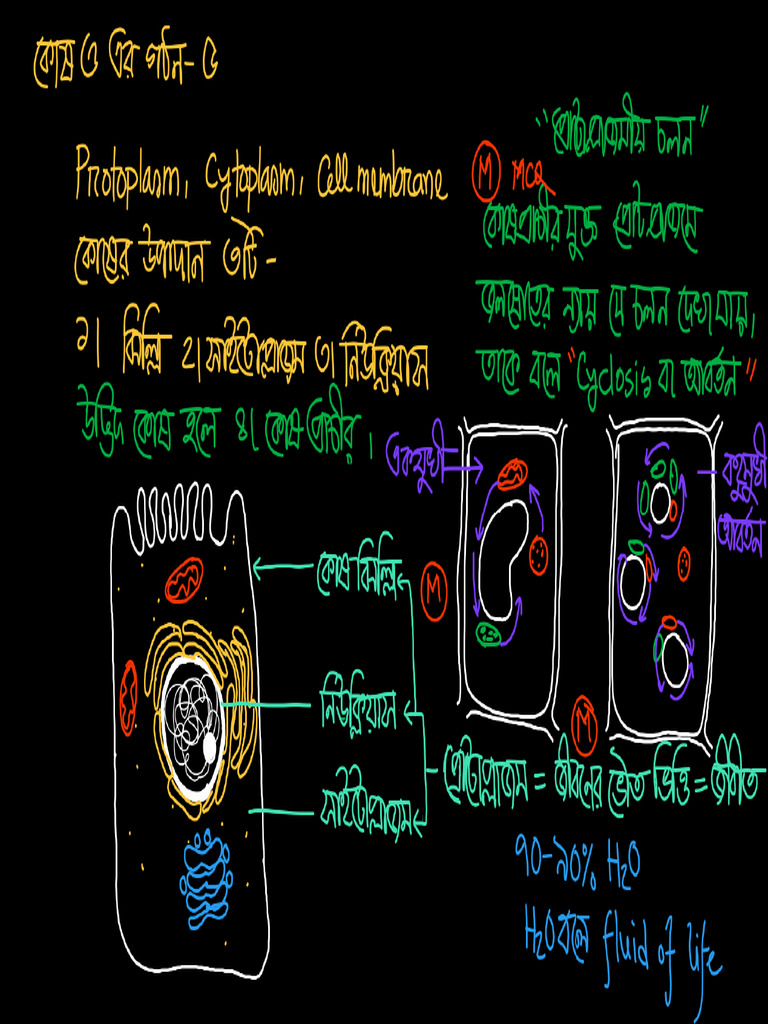 কোষ ও এর গঠন-৫
Protoplasm, Cytoplasm, Cell membrane
কোষের উপাদান ৩টি -
১। ঝিল্লি ২। সাইটোপ্লাজম ৩। নিউক্লিয়াস
উদ্ভিদ কোষ হলে ৪। কোষ প্রাচীর।
"প্রোটোপ্লাজমীয় চলন"
M MCQ
কোষপ্রাচীর যুক্ত প্রোটোপ্লাজমে
জলস্রোতের ন্যায় যে চলন দেখা যায়,
তাকে বলে "Cyclosis বা আবর্তন"
একমুখী
বহুমুখী
আবর্তন
কোষ ঝিল্লি
M
নিউক্লিয়াস
M
সাইটোপ্লাজম
প্রোটোপ্লাজম = জীবনের ভৌত ভিত্তি = জীবীত
৭০-৯০% H₂O
H₂O বলে fluid of life